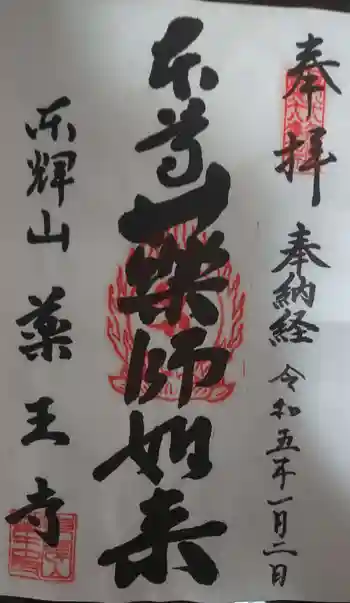 奉拝
奉納経 令和五年一月二日
本尊薬師如来
東輝山 薬王寺